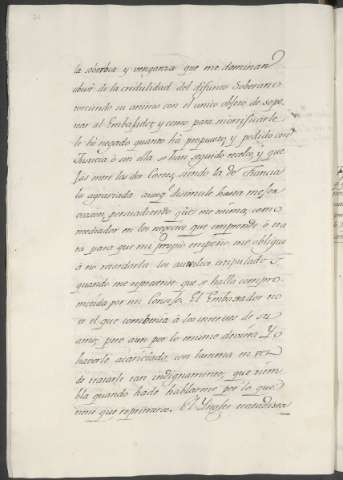 la soberbia y venganza que me dominan
abusé de la credulidad del difunto Soberano
torciendo su animo con el unico objeto de sepa
rar al Embaxador y como para mortificarle
le hé negado quanto há propuesto y pedido con
Justicia ó sin ella se han seguido recelos, y que
jas entre las dos Cortes, siendo la de Francia
la agraviada aunq.e disimule hasta mejor
ocasion, persuadiendo q.e yo mismo, como
mediador en los negocios que emprende ó tra
ta para que mi propio empeño me obligue
á no retardarla los auxilios estipulados
quando me represente que se halla compro
metida por mi Consejo. El Embaxador no
es el que combenia á los intereses de su
amo, pero aun por lo mismo deviera Yo
haverle acariciado, con lastima en vez
de tratarle tan indignamente, que tiem
bla quando há de hablarme por lo que
tiene que reprimirse. El Ingles